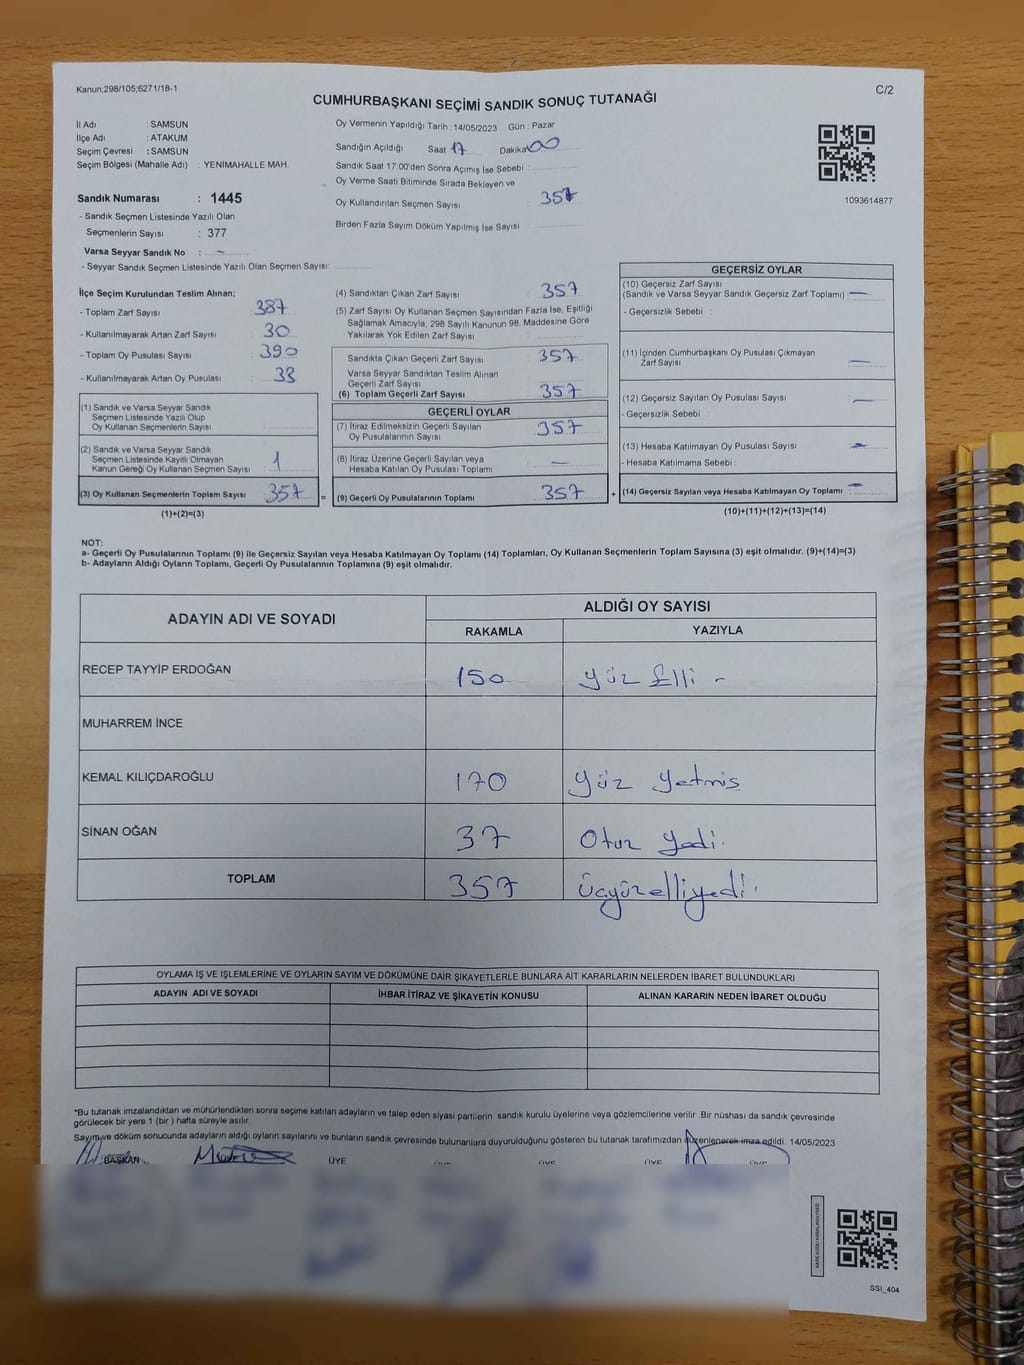 Kanun;298/105;6271/18-1
C/2
CUMHURBAŞKANI SEÇİMİ SANDIK SONUÇ TUTANAĞI
İl Adı : SAMSUN
İlçe Adı : ATAKUM
Seçim Çevresi : SAMSUN
Seçim Bölgesi (Mahalle Adı) : YENİMAHALLE MAH.
Sandık Numarası : 1445
- Sandık Seçmen Listesinde Yazılı Olan
Seçmenlerin Sayısı : 377
Varsa Seyyar Sandık No : -
- Seyyar Sandık Seçmen Listesinde Yazılı Olan Seçmen Sayısı:
Oy Vermenin Yapıldığı Tarih : 14/05/2023 Gün : Pazar
Sandığın Açıldığı Saat 17 Dakika 00
Sandık Saat 17:00'den Sonra Açımış İse Sebebi :
Oy Verme Saati Bitiminde Sırada Bekleyen ve
Oy Kullandırılan Seçmen Sayısı : 357
Birden Fazla Sayım Döküm Yapılmış İse Sayısı :
1093614877
İlçe Seçim Kurulundan Teslim Alınan;
- Toplam Zarf Sayısı : 387
- Kullanılmayarak Artan Zarf Sayısı : 30
- Toplam Oy Pusulası Sayısı : 390
- Kullanılmayarak Artan Oy Pusulası : 33
(1) Sandık ve Varsa Seyyar Sandık
Seçmen Listesinde Yazılı Olup
Oy Kullanan Seçmenlerin Sayısı :
(2) Sandık ve Varsa Seyyar Sandık
Seçmen Listesinde Kayıtlı Olmayan
Kanun Gereği Oy Kullanan Seçmen Sayısı : 1
(3) Oy Kullanan Seçmenlerin Toplam Sayısı 357 =
(1)+(2)=(3)
(4) Sandıktan Çıkan Zarf Sayısı : 357
(5) Zarf Sayısı Oy Kullanan Seçmen Sayısından Fazla İse, Eşitliği
Sağlamak Amacıyla, 298 Sayılı Kanunun 98. Maddesine Göre
Yakılarak Yok Edilen Zarf Sayısı :
Sandıkta Çıkan Geçerli Zarf Sayısı : 357
Varsa Seyyar Sandıktan Teslim Alınan
Geçerli Zarf Sayısı :
(6) Toplam Geçerli Zarf Sayısı : 357
GEÇERLİ OYLAR
(7) İtiraz Edilmeksizin Geçerli Sayılan
Oy Pusulalarının Sayısı : 357
(8) İtiraz Üzerine Geçerli Sayılan veya
Hesaba Katılan Oy Pusulası Toplamı : -
(9) Geçerli Oy Pusulalarının Toplamı : 357 +
GEÇERSİZ OYLAR
(10) Geçersiz Zarf Sayısı
(Sandık ve Varsa Seyyar Sandık Geçersiz Zarf Toplamı) : -
- Geçersizlik Sebebi :
(11) İçinden Cumhurbaşkanı Oy Pusulası Çıkmayan
Zarf Sayısı : -
(12) Geçersiz Sayılan Oy Pusulası Sayısı : -
- Geçersizlik Sebebi :
(13) Hesaba Katılmayan Oy Pusulası Sayısı : -
- Hesaba Katılmama Sebebi :
(14) Geçersiz Sayılan veya Hesaba Katılmayan Oy Toplamı : -
(10)+(11)+(12)+(13)=(14)
NOT:
a- Geçerli Oy Pusulalarının Toplamı (9) ile Geçersiz Sayılan veya Hesaba Katılmayan Oy Toplamı (14) Toplamları, Oy Kullanan Seçmenlerin Toplam Sayısına (3) eşit olmalıdır. (9)+(14)=(3)
b- Adayların Aldığı Oyların Toplamı, Geçerli Oy Pusulalarının Toplamına (9) eşit olmalıdır.
ADAYIN ADI VE SOYADI ALDIĞI OY SAYISI
RAKAMLA YAZIYLA
RECEP TAYYİP ERDOĞAN 150 Yüz Elli -
MUHARREM İNCE
KEMAL KILIÇDAROĞLU 170 Yüz Yetmis
SİNAN OĞAN 37 Otuz Yedi.
TOPLAM 357 Üçyüzelliyedi.
OYLAMA İŞ VE İŞLEMLERİNE VE OYLARIN SAYIM VE DÖKÜMÜNE DAİR ŞİKAYETLERLE BUNLARA AİT KARARLARIN NELERDEN İBARET BULUNDUKLARI
ADAYIN ADI VE SOYADI İHBAR İTİRAZ VE ŞİKAYETİN KONUSU ALINAN KARARIN NEDEN İBARET OLDUĞU
*Bu tutanak imzalandıktan ve mühürlendikten sonra seçime katılan adayların ve talep eden siyasi partilerin sandık kurulu üyelerine veya gözlemcilerine verilir. Bir nüshası da sandık çevresinde
görülecek bir yere 1 (bir) hafta süreyle asılır.
Sayım ve döküm sonucunda adayların aldığı oyların sayılarını ve bunların sandık çevresinde bulunanlara duyurulduğunu gösteren bu tutanak tarafımızdan düzenlenerek imza edildi. 14/05/2023
BAŞKAN ÜYE ÜYE ÜYE ÜYE ÜYE
SSI_404